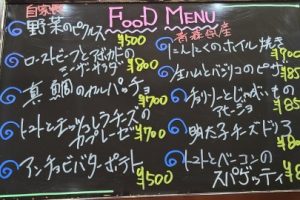 FOOD MENU
自家製
野菜のピクルス ¥500
ローストビーフとアボカドの
シーザーサラダ ¥800
真鯛のカルパッチョ ¥700
トマトとモッツァレラチーズの
カプレーゼ ¥700
アンチョビバターポテト ¥500
青森県産
にんにくのホイル焼き
生ハムとバジリコのピザ
チョリソーとじゃがいもの
アヒージョ
明太子チーズドリア
トマトとベーコンの
スパゲッティ